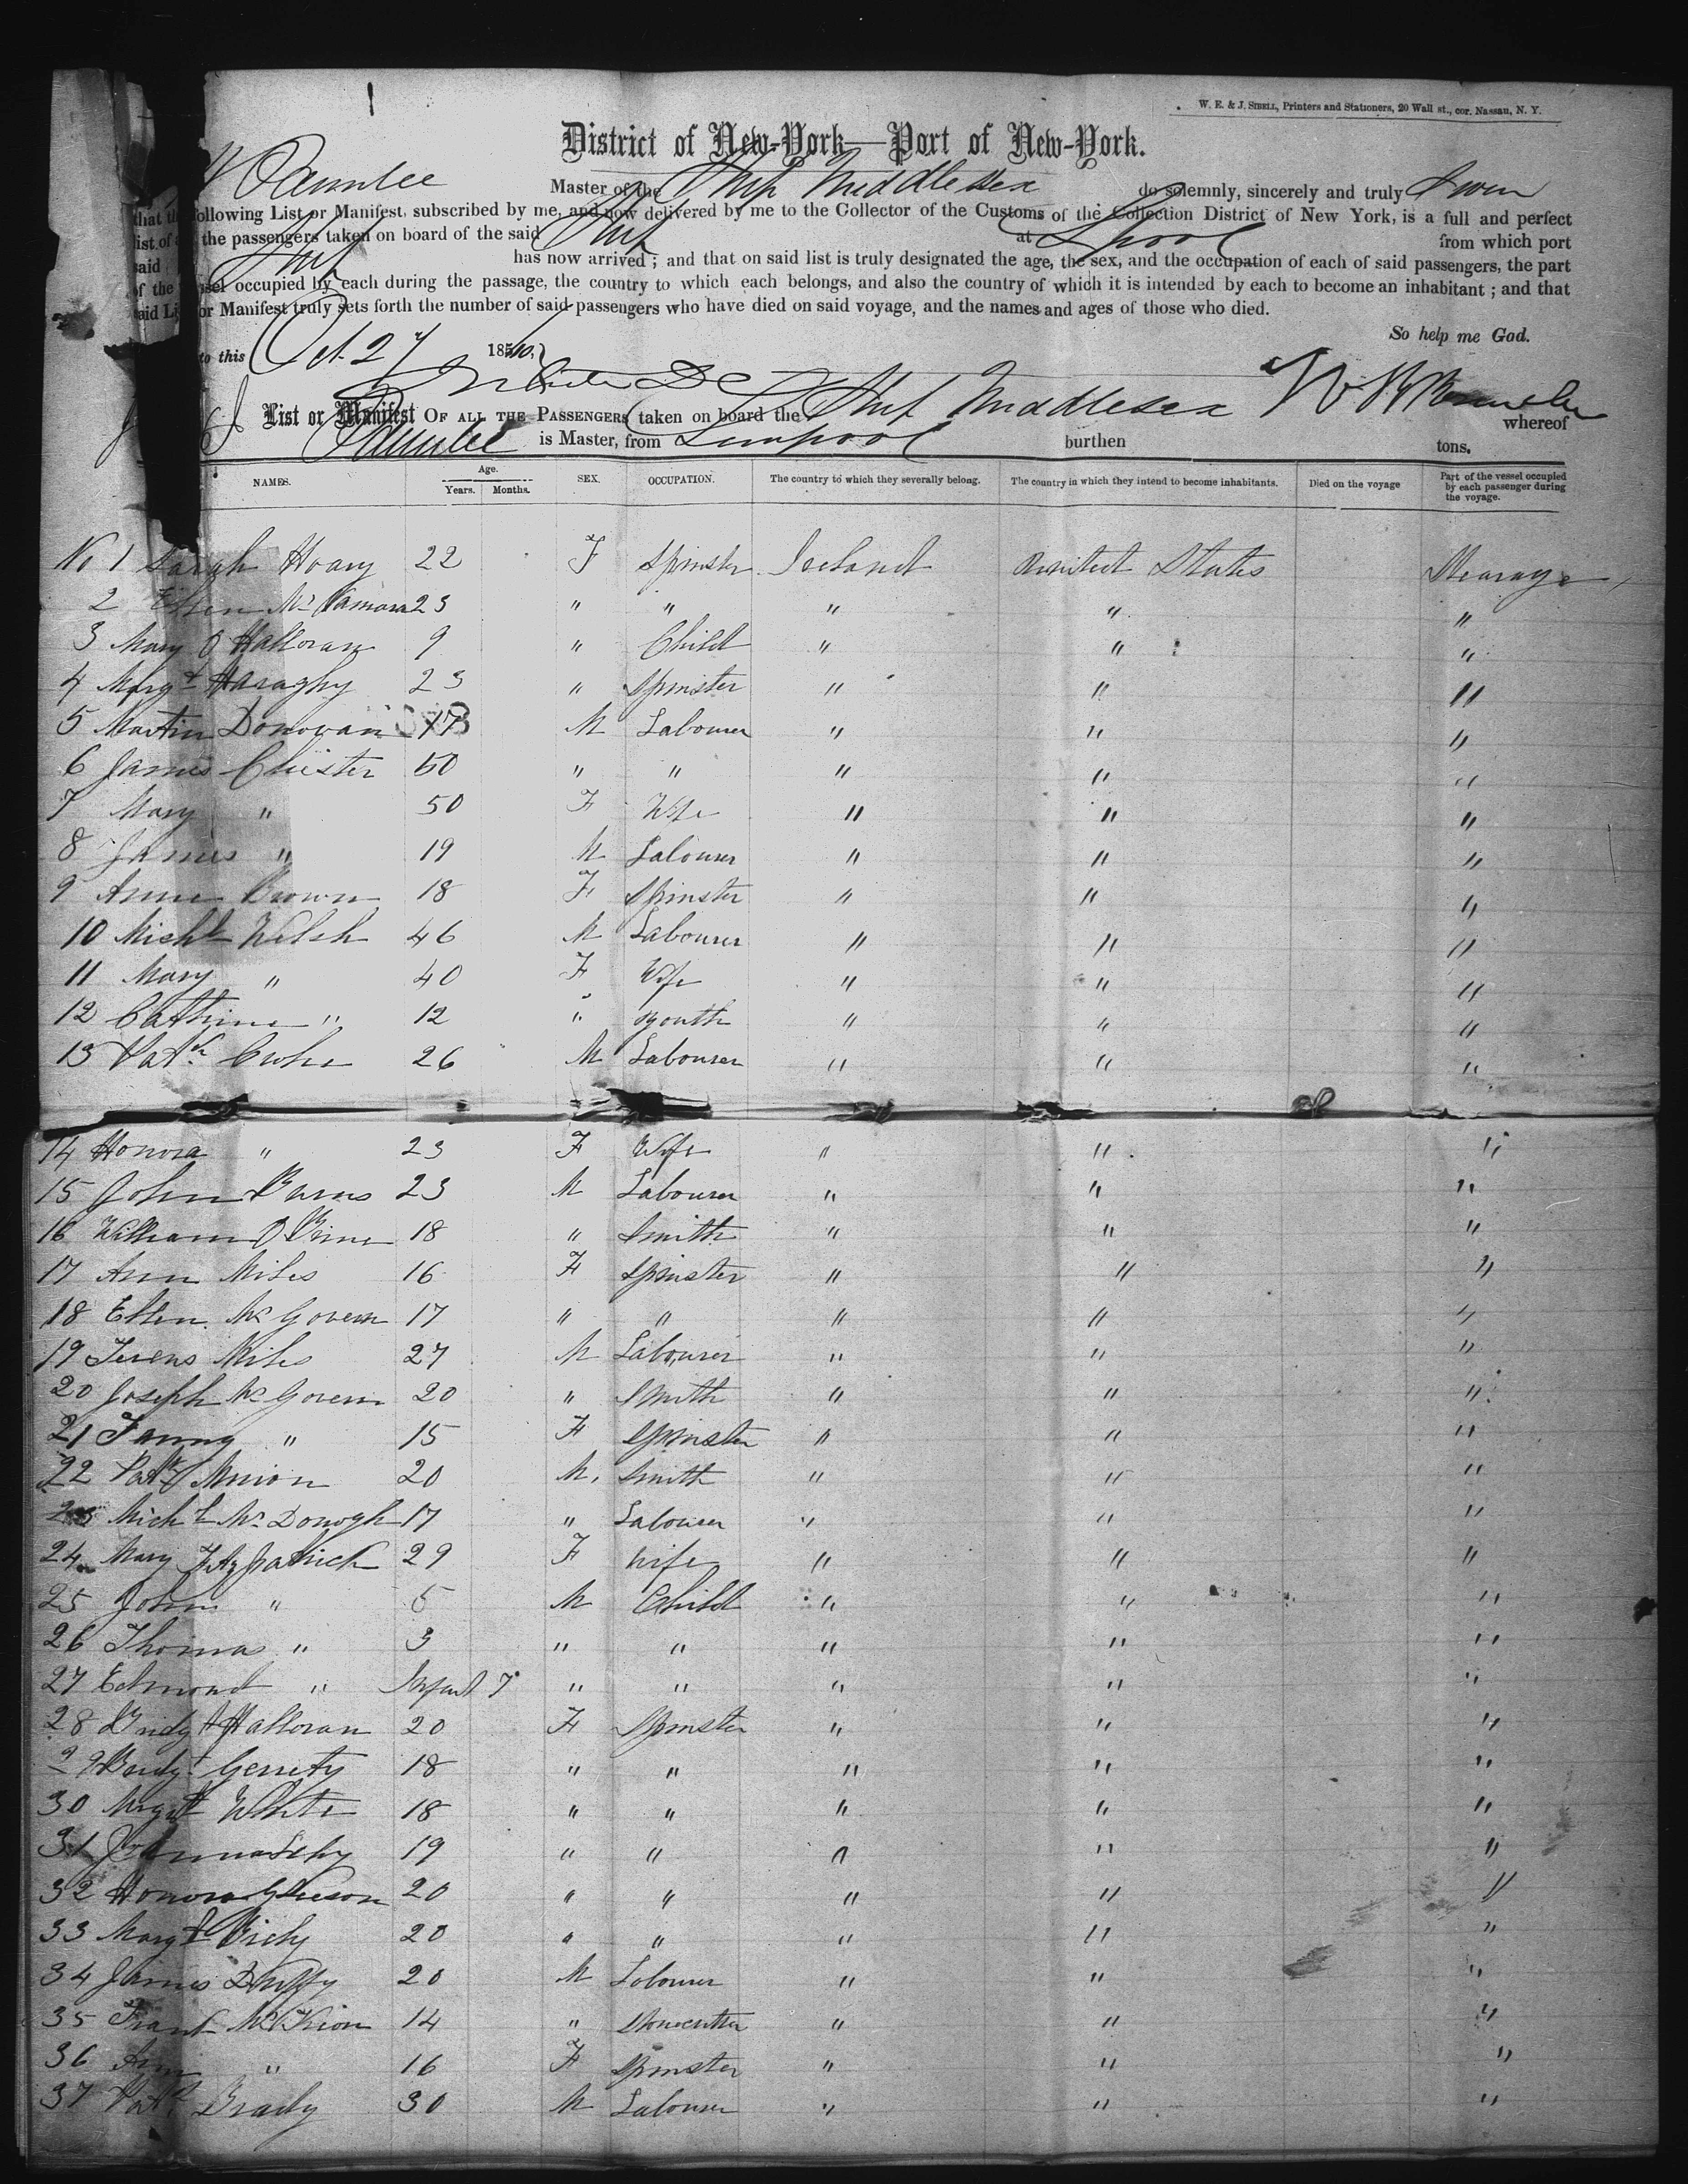 W. E. & J. SIBELL, Printers and Stationers, 20 Wall st., cor. Nassau, N. Y.
District of New-York—Port of New-York.
Master of the Ship Middlesex do solemnly, sincerely and truly Swear
that the following List or Manifest, subscribed by me, and now delivered by me to the Collector of the Customs of the Collection District of New York, is a full and perfect
list of the passengers taken on board of the said Ship at Lpool from which port
said Ship has now arrived; and that on said list is truly designated the age, the sex, and the occupation of each of said passengers, the part
of the vessel occupied by each during the passage, the country to which each belongs, and also the country of which it is intended by each to become an inhabitant; and that
said List or Manifest truly sets forth the number of said passengers who have died on said voyage, and the names and ages of those who died.
So help me God.
to this Oct. 27 185
List or Manifest OF ALL THE PASSENGERS taken on board the Ship Middlesex whereof
is Master, from Liverpool burthen tons.
NAMES. Age. Years. Months. SEX. OCCUPATION. The country to which they severally belong. The country in which they intend to become inhabitants. Died on the voyage Part of the vessel occupied by each passenger during the voyage.
No 1 Sarah Hoary 22 F Spinster Ireland United States Steerage
2 Ellen McNamara 23 " " " " "
3 Mary O Halloran 9 " Child " " "
4 Margt Haraghy 23 " Spinster " " "
5 Martin Donovan 17 M Labourer " " "
6 James Chister 60 " " " " "
7 Mary " 50 F Wife " " "
8 James " 19 M Labourer " " "
9 Anne Brown 18 F Spinster " " "
10 Michl Welsh 46 M Labourer " " "
11 Mary " 40 F Wife " " "
12 Cathrine " 12 " Youth " " "
13 Patk 26 M Labourer " " "
14 Honora " 23 F Wife " " "
15 John Burns 23 M Labourer " " "
16 William O Brine 18 " Smith " " "
17 Ann Miles 16 F Spinster " " "
18 Ellen McGovern 17 " " " " "
19 Terens Miles 27 M Labourer " " "
20 Joseph McGovern 20 " Smith " " "
21 Fanny " 15 F Spinster " " "
22 Patk 20 M. Smith " " "
23 Michl McDonogh 17 " Labourer " " "
24 Mary Fitzpatrick 29 F Wife " " "
25 John " 5 M Child " " "
26 Thomas " 3 " " " " "
27 Edmond " Infant 7 " " " " "
28 Bridgt Halloran 20 F Spinster " " "
29 Bridgt Gerrety 18 " " " " "
30 Margt White 18 " " " " "
31 19 " " " " "
32 Honora Gleeson 20 " " " " "
33 Margt 20 " " " " "
34 James Duffy 20 M Labourer " " "
35 Frank McKeon 14 " Stonecutter " " "
36 Ann " 16 F Spinster " " "
37 Patk Brady 30 M Labourer " " "